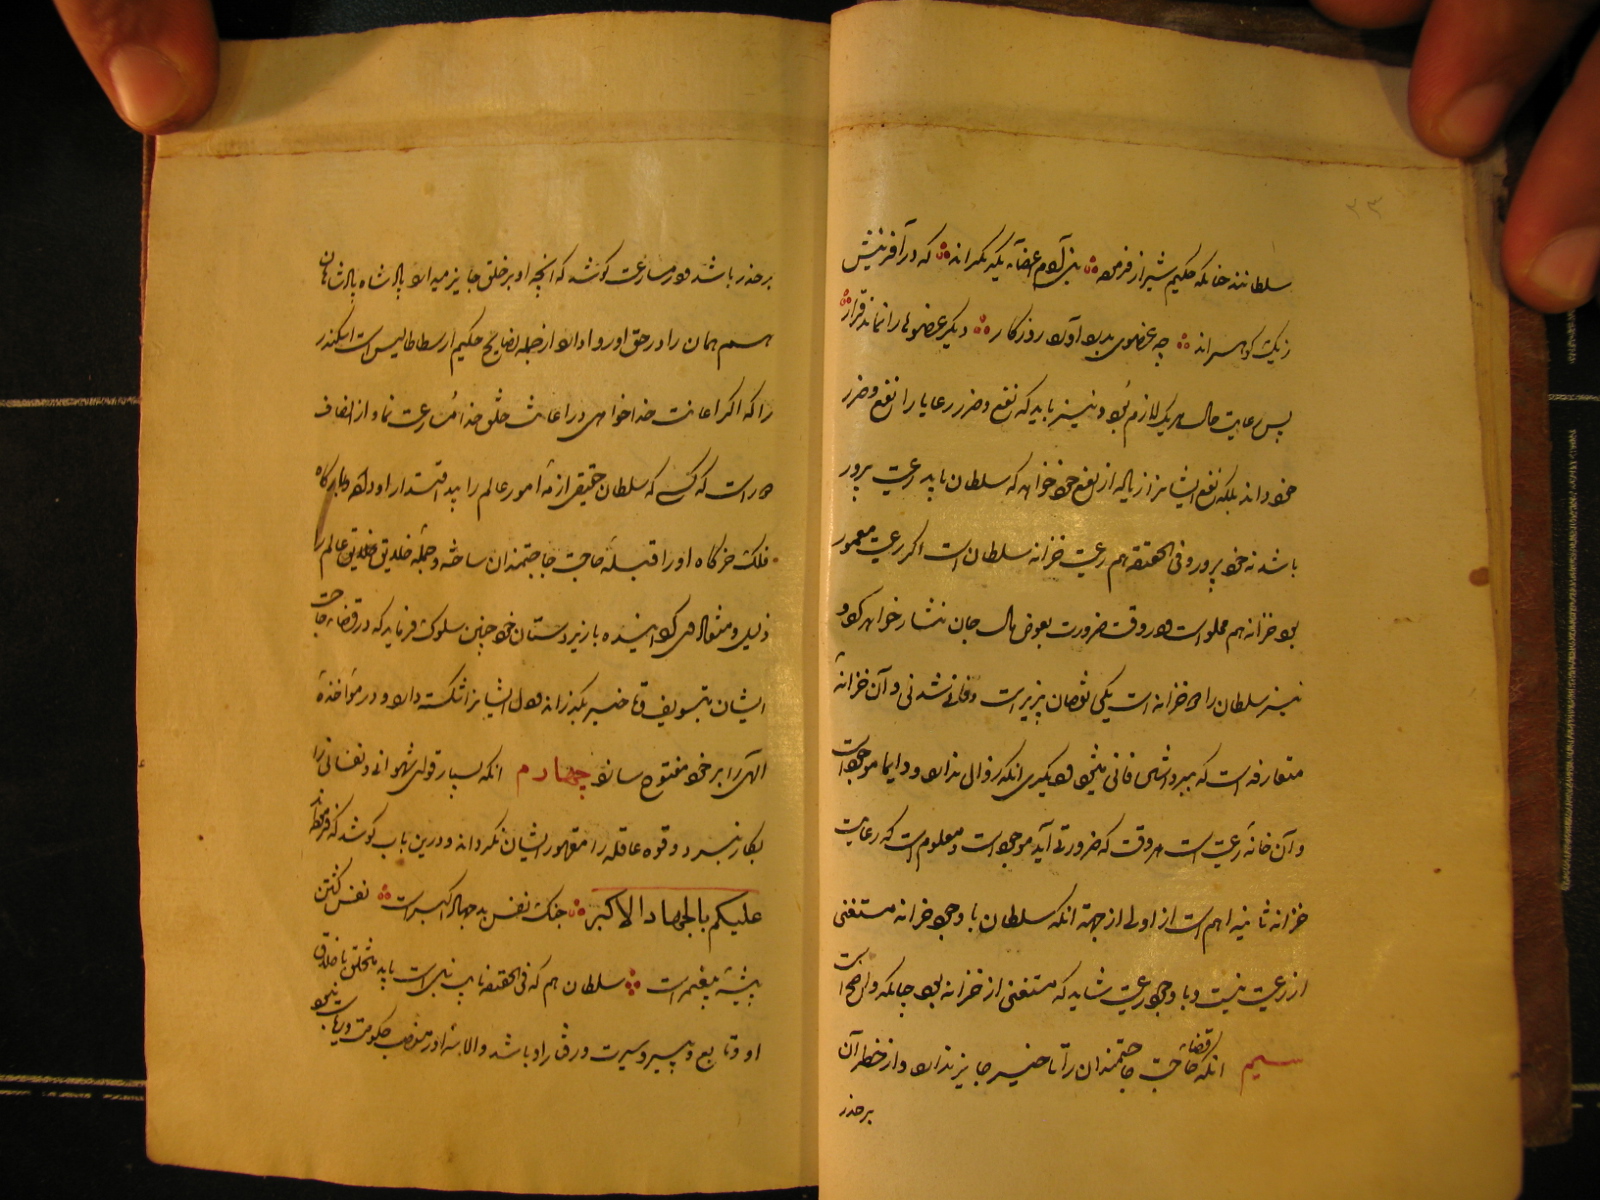 ۳۳
سلطانند چنانکه حکیم شیراز فرموده بنی آدم اعضای یکدیگرند که در آفرینش
ز یک گوهرند چه عضوی بدرد آورد روزگار دیگر عضوها را نماند قرار
پس رعایت حال هر یک لازم بود و نیز باید که نفع و ضرر رعایا را نفع و ضرر
خود داند بلکه نفع ایشانرا زیاده از نفع خود خواهد که سلطان باید رعیت پرور
باشد نه خود پرور و فی الحقیقه هم رعیت خزانه سلطان است اگر رعیت معمور
بود خزانه هم مملو است و در وقت ضرورت بعوض مال جان نثار خواهد کرد و
نیز سلطان را دو خزانه است یکی نقصان پذیر است و فانی شدنی و آن خزانهٔ
متعارفه است که بسر داشتی فانی میشود و دیگری آنکه زوال ندارد و دایما موجود است
و آن خانهٔ رعیت است هر وقت که ضرورتی آید موجود است و معلوم است که رعایت
خزانه ثانیه اهم است از اولی از جهة آنکه سلطان با وجود خزانه مستغنی
از رعیت نیست و با وجود رعیت شاید که مستغنی از خزانه بود چنانکه واضح است
سیم آنکه قضای حاجت حاجتمندان را تاخیر جایز ندارد و از خطر آن
برحذر
برحذر باشد و در مسارعت کوشد که آنچه او بر خلق جایز میدارد پادشاه پادشاهان
هم همان را در حق او روا دارد از جمله نصایح حکیم ارسطاطالیس است اسکندر
را که اگر اعانت خدا خواهی در اعانت خلق خدا مسارعت نما و از انصاف
دور است که کسی که سلطان حقیقی ازمهٔ امور عالم را بید اقتدار او داده و بارگاه
فلک خرگاه او را قبلهٔ حاجت حاجتمندان ساخته و جمله خلایق عالم را
ذلیل و منقاد وی گردانیده با زیردستان خود چنین سلوک فرماید که در قضای حاجت
ایشان بتسویف و تاخیر بگذراند و دل ایشانرا شکسته دارد و در مؤاخذهٔ
الهی را بر خود مفتوح سازد چهارم آنکه بسیار قوای شهوانی و نفسانی را
بکار نبرد و قوه عاقله را مقهور ایشان نگرداند و درین باب کوشد که فرموده‌اند
علیکم بالجهاد الاکبر جنگ نفس بد جهاد اکبر است نفس کشتن
پیشهٔ پیغمبر است سلطان هم که فی الحقیقه نایب نبی است باید متخلق باخلاق
او و تابع و پیرو سیرت و رفتار او باشد والا سزاوار منصب حکومت و ریاست نمیشود